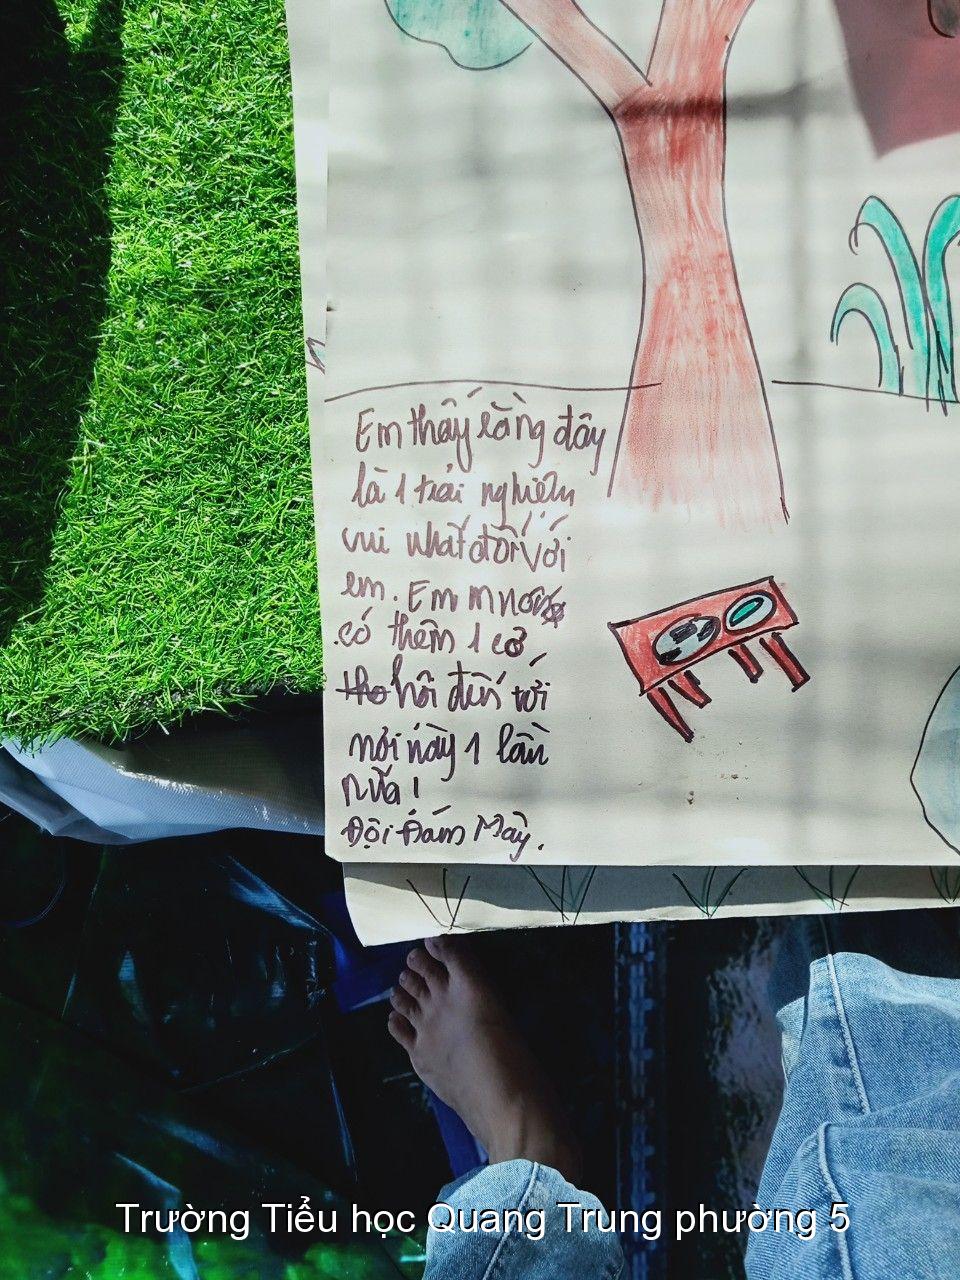 Em thấy rằng đây
là 1 trải nghiệm
vui nhất đối với
em. Em mong
có thêm 1 cơ
tho hôi đến với
nơi này 1 lần
nữa!
Đội Đám Mây.
Trường Tiểu học Quang Trung phường 5